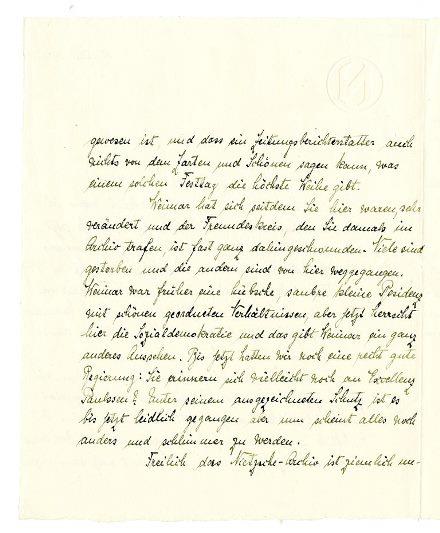 gewesen ist, und dass ein Zeitungsberichterstatter auch
nichts von dem Zarten und Schönen sagen kann, was
einem solchen Festtag die höchste Weihe gibt.
Weimar hat sich seitdem Sie hier waren, sehr
verändert und der Freundeskreis, den Sie damals im
Archiv trafen, ist fast ganz dahingeschwunden. Viele sind
gestorben und die andern sind von hier weggegangen.
Weimar war früher eine hübsche, saubre kleine Residenz
mit schönen geordneten Verhältnissen, aber jetzt herrscht
hier die Sozialdemokratie und das gibt Weimar ein ganz
anderes Aussehen. Bis jetzt hatten wir noch eine recht gute
Regierung: Sie erinnern sich vielleicht noch an Exzellenz
Paulssen? Unter seinem ausgezeichneten Schutz ist es
bis jetzt leidlich gegangen aber nun scheint alles noch
anders und schlimmer zu werden.
Freilich das Nietzsche-Archiv ist ziemlich un-